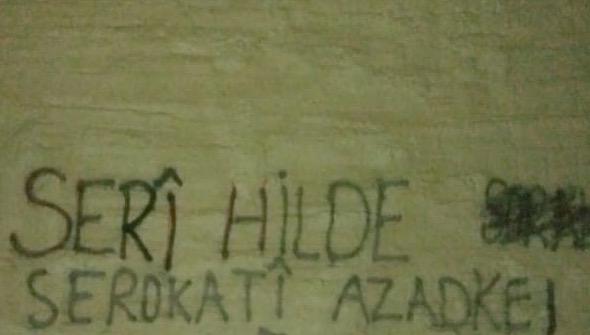 SERÎ HİLDE
SEROKATÎ AZADKE